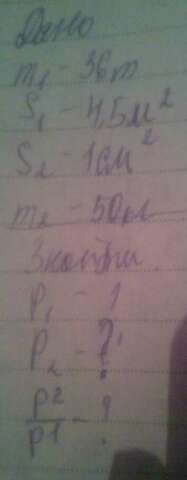 Дано
m₁ - 36т
S₁ - 4,5м²
S₂ - 1см²
m₂ - 50кг
Знайти
P₁ - ?
P₂ - ?
P2/P1 - ?